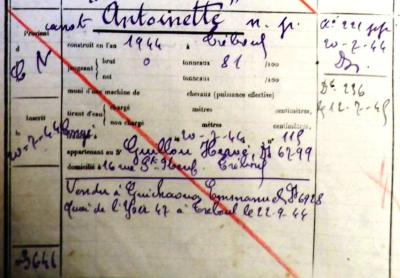 canot "Antoinette" n. p.
Provient
d
C N
construit en l'an 1944 à Tréboul
jaugeant
brut 0 tonneaux 81 /100
net tonneaux /100
muni d'une machine de chevaux (puissance effective)
tirant d'eau
chargé mètres centimètres,
non chargé mètres centimètres,
Inscrit
à
20-7-44
20-7-44 n° 115
appartenant au Sr Guillou Hervé, Dz 6799
domicilié à 16 rue Tréboul
Vendu à Guichaoua Emmanuel Dz 6928
Quai de l'Yser 47 à Tréboul le 22.9.44
20-7-44
Dz 236
12-7-45
3646